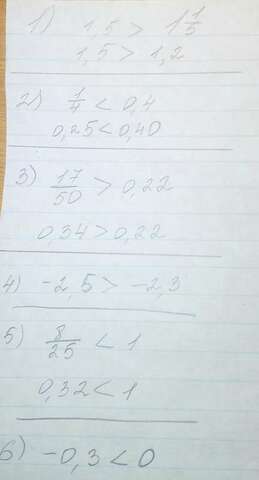 1) 1,5 > 1 1/5
1,5 > 1,2
2) 1/4 < 0,4
0,25 < 0,40
3) 17/50 > 0,22
0,34 > 0,22
4) -2,5 > -2,3
5) 8/25 < 1
0,32 < 1
6) -0,3 < 0